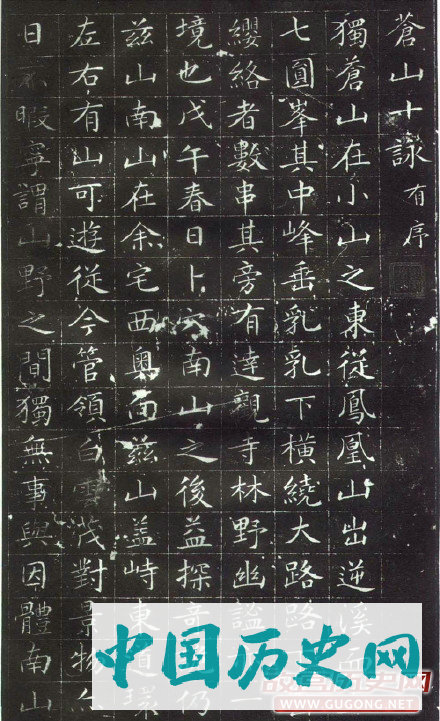 蒼山十詠 有序
獨蒼山在小山之東從鳳凰山出逆溪而
七圓峯其中峰垂乳乳下橫繞大路路
纓絡者數串其旁有達觀寺林野幽謐
境也戊午春日卜穴南山之後益探奇仍
茲山南山在余宅西奧而茲山益峙東道環
左右有山可遊從今管領白雲茂對景物
日不暇寧謂山野之間獨無事與因體南山
中国历史网
WWW.GUGONG.NET